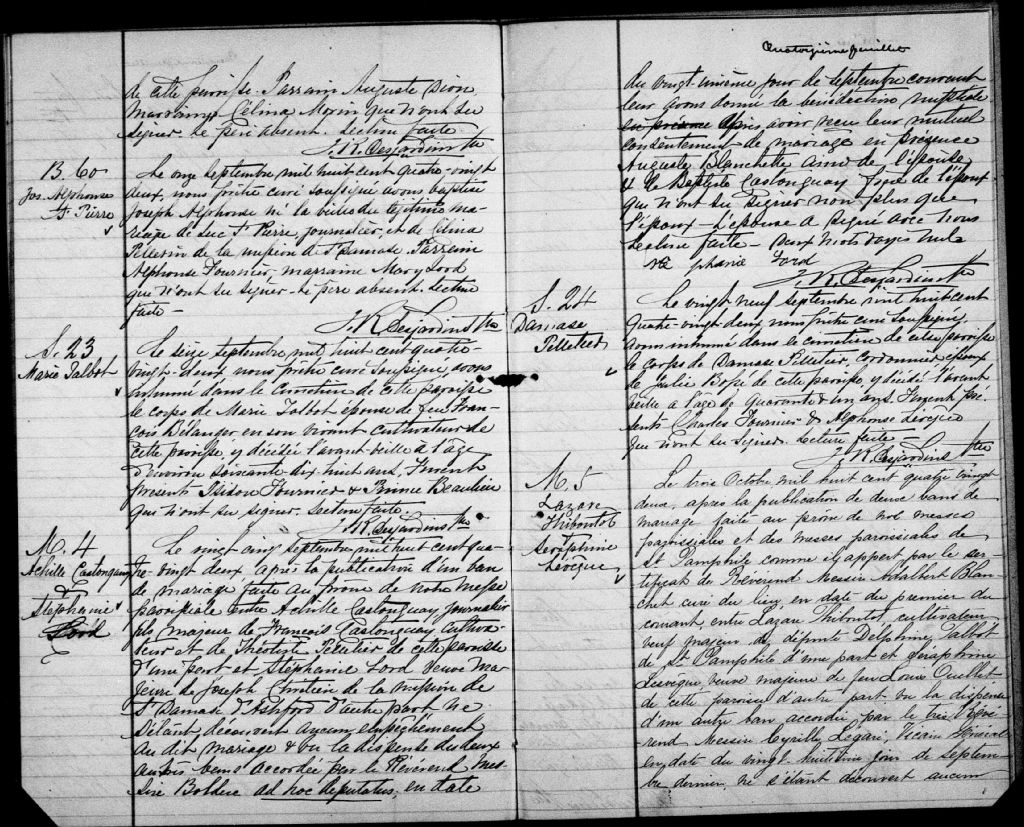 de cette paroisse. Parrain Auguste Dion,
marraine Célina Morin qui n'ont su
signer. Le père absent. Lecture faite
J. R. Desjardins Ptre
B. 60
Jos. Alphonse
St Pierre
Le onze septembre, mil huit cent quatre-vingt
deux, nous prêtre curé soussigné avons baptisé
Joseph Alphonse né la veille du légitime ma-
riage de Luc St Pierre, journalier, et de Célina
Pellerin de la mission de St Damase. Parrain
Alphonse Fournier, marraine Mary Lord
qui n'ont su signer. Le père absent. Lecture
faite -
J. R. Desjardins Ptre
S. 23
Marie Talbot
Le seize septembre, mil huit cent quatre-
vingt-deux nous prêtre curé soussigné, avons
inhumé dans le cimetière de cette paroisse
le corps de Marie Talbot épouse de feu Fran-
çois Bélanger en son vivant cultivateur de
cette paroisse, y décédée l'avant veille à l'âge
d'environ soixante dix huit ans. Furent
présents Isidore Fournier & Beaulieu
qui n'ont su signer. Lecture faite.
J. R. Desjardins Ptre
M. 4
Achille Castonguay
&
Stéphanie
Lord
Le vingt cinq septembre, mil huit cent qua-
tre-vingt deux après la publication d'un ban
de mariage faite au prône de notre messe
paroissiale entre Achille Castonguay, journalier
fils majeur de François Castonguay, cultiva-
teur et de Théotiste Pelletier de cette paroisse
d'une part et Stéphanie Lord veuve ma-
jeure de Joseph Chrétien de la mission de
St Damase d'Ashford d'autre part ne
s'étant découvert aucun empêchement
au dit mariage & vu la dispense des deux
autres bans accordée par le Révérend Mes-
sire Bolduc ad hoc deputatus, en date
Quatorzième feuillet
du vingt unième jour de septembre courant
leur avons donné la bénédiction nuptiale
en présence après avoir reçu leur mutuel
consentement de mariage en présence
Auguste Blanchette ami de l'épouse
& de Baptiste Castonguay frère de l'époux
qui n'ont su signer non plus que
l'époux - L'épouse a signé avec nous
Lecture faite - Deux mots rayés nuls
phanie Lord
J. R. Desjardins Ptre
S. 24
Damase
Pelletier
Le vingt neuf septembre mil huit cent
quatre-vingt deux nous prêtre curé soussigné,
avons inhumé dans le cimetière de cette paroisse
le corps de Damase Pelletier Cordonnier époux
de Julie Bossé de cette paroisse, y décédé l'avant
veille à l'âge de quarante & un ans. Furent pré-
sents Charles Fournier & Alphonse Lévêque
qui n'ont su signer. Lecture faite -
J. R. Desjardins Ptre
M. 5
Lazare
Thiboutot
&
Séraphine
Levêque
Le trois Octobre mil huit cent quatre vingt
deux, après la publication de deux bans de
mariage faite au prône de nos messes
paroissiales et des messes paroissiales de
St Pamphile comme il appert par le cer-
tificat du Révérend Messire Adalbert Blan-
chet curé du lieu en date du premier du
courant entre Lazare Thiboutot, cultivateur
veuf majeur de défunte Delphine Talbot
de St Pamphile d'une part et Séraphine
Levêque veuve majeure de feu Louis Ouellet
de cette paroisse d'autre part vu la dispense
d'un autre ban accordée par le très Révé-
rend Messire Cyrille Legaré, Vicaire Général
en date du vingt huitième jour de septem-
bre dernier, ne s'étant découvert aucun